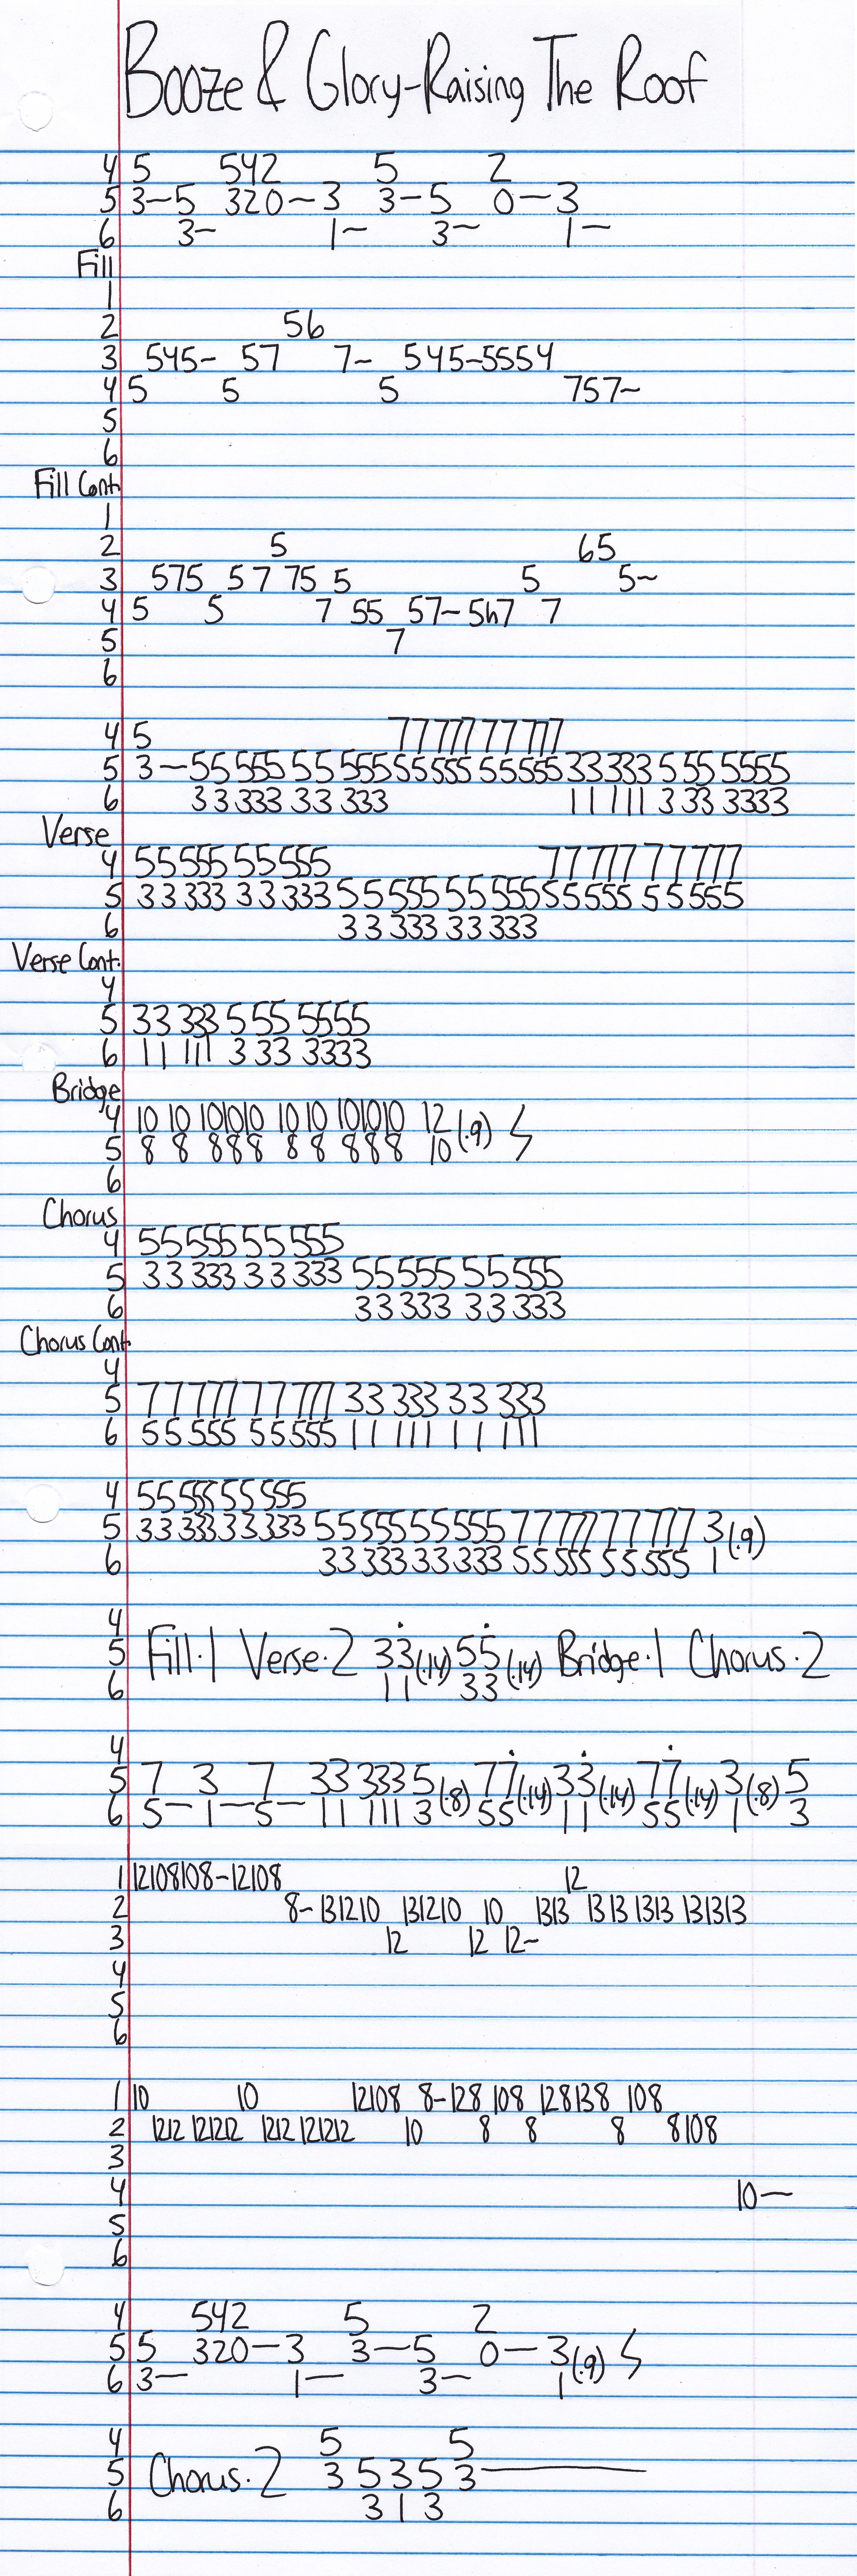 Booze & Glory-Raising The Roof
4 5 542 5 2
5 3-5 320-3 3-5 0-3
6 3- 1- 3- 1-
Fill
1
2 56
3 545- 57 7- 545-5554
4 5 5 5 757-
5
6
Fill Cont.
1
2 5 65
3 575 57 75 5 5 5-
4 5 5 7 55 57-5h7 7
5 7
6
4 5 77 777 77 777
5 3-55 555 55 555 55 555 55 555 33 333 5 55 5555
6 33 333 33 333 11 111 3 33 3333
Verse
4 55 555 55 555 77 777 77 777
5 33 333 33 333 55 555 55 555 55 555 55 555
6 33 333 33 333
Verse Cont.
4
5 33 333 5 55 5555
6 11 111 3 33 3333
Bridge
4 10 10 101010 10 10 101010 12
5 8 8 888 8 8 888 10 (.9)
6
Chorus
4 55 555 55 555
5 33 333 33 333 55 555 55 555
6 33 333 33 333
Chorus Cont.
4
5 77 777 77 777 33 333 33 333
6 55 555 55 555 11 111 11 111
4 55 555 55 555
5 33 333 33 333 55 555 55 555 77 777 77 777 3 (.9)
6 33 333 33 333 55 555 55 555 1
4
5 Fill.1 Verse.2 33 (.14) 55 (.14) Bridge.1 Chorus.2
6 11 33
4
5 7 3 7 33 333 5 (.8) 77 (.14) 33 (.14) 77 (.14) 3 (.8) 5
6 5- 1- 5- 11 111 3 55 11 55 1 3
1 12108108-12108 12
2 8-131210 131210 10 1313 1313 1313 131313
3 12 12 12-
4
5
6
1 10 10 12108 8-128 108 128138 108
2 1212 121212 1212 121212 10 8 8 8 8108
3
4 10-
5
6
4 542 5 2
5 5 320-3 3-5 0-3 (.9)
6 3- 1- 3- 1
4 5 5
5 Chorus.2 3 5 3 5 3-
6 3 1 3